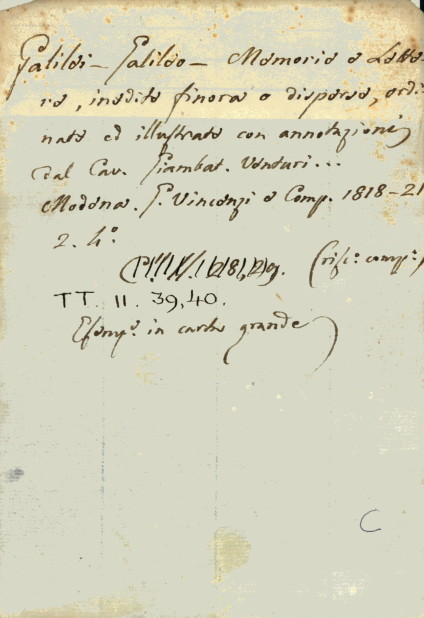 Galilei - Galileo - Memorie e Lette-
re, inedite finora o disperse, ordi-
nate ed illustrate con annotazioni
dal Cav. Giambat. Venturi...
Modena. G. Vincenzi e Comp. 1818-21
2. 4º.
(risc.º comp.º)
TT. II. 39,40.
Esemp.e in carta grande)
C